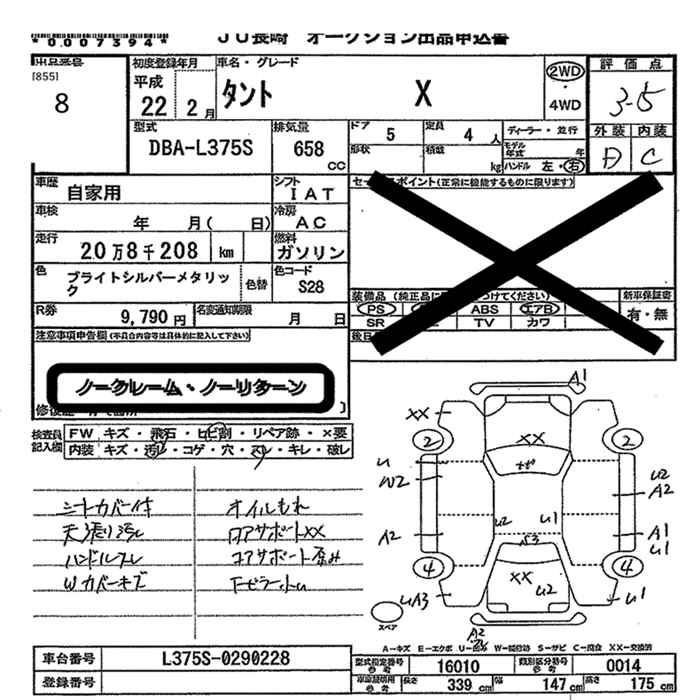 *0.007394*
JU長崎 オークション出品申込書
出品番号
[855]
8
初度登録年月
平成
22年 2月
車名・グレード
タント X
2WD
・
4WD
評価点
3-5
外装 内装
D C
型式
DBA-L375S
排気量
658
CC
ドア 5 定員 4 人
形状 積載 kg
ディーラー・並行
モデル年式 年
ハンドル 左・右
車歴
自家用
シフト
IAT
車検
年 月( 日)
冷房
AC
走行
20万8千208 km
燃料
ガソリン
色
ブライトシルバーメタリック
色替
色コード
S28
R券
9,790円
名変通知期限
月 日
セールスポイント(正常に機能するものに限ります)
装備品
PS
ABS
エアB
SR
TV
カワ
新車保証書
有・無
注意事項申告欄(不具合内容等は具体的に記入して下さい)
ノークレーム・ノーリターン
検査員
記入欄
FW キズ・飛石・ヒビ割・リペア跡・×要
内装 キズ・汚レ・コゲ・穴・スレ・キレ・破レ
シートカバー付
天張り汚レ
ハンドルスレ
Wカバーキズ
オイルもれ
ロアサポートXX
コアサポート歪み
A1
XX
2
2
XX
U
W2
U2
A2
U2
U1
A2
A1
U1
A3
4
4
XX
U2
UA3
U1
A2
スペア
A-キズ E-エクボ U-凹み W-補修跡 S-サビ C-腐食 XX-交換済
車台番号 L375S-0290228
登録番号
型式指定番号
参考
16010
類別区分番号
参考
0014
車庫証明用
参考
長さ 339 cm 幅 147 cm 高さ 175 cm